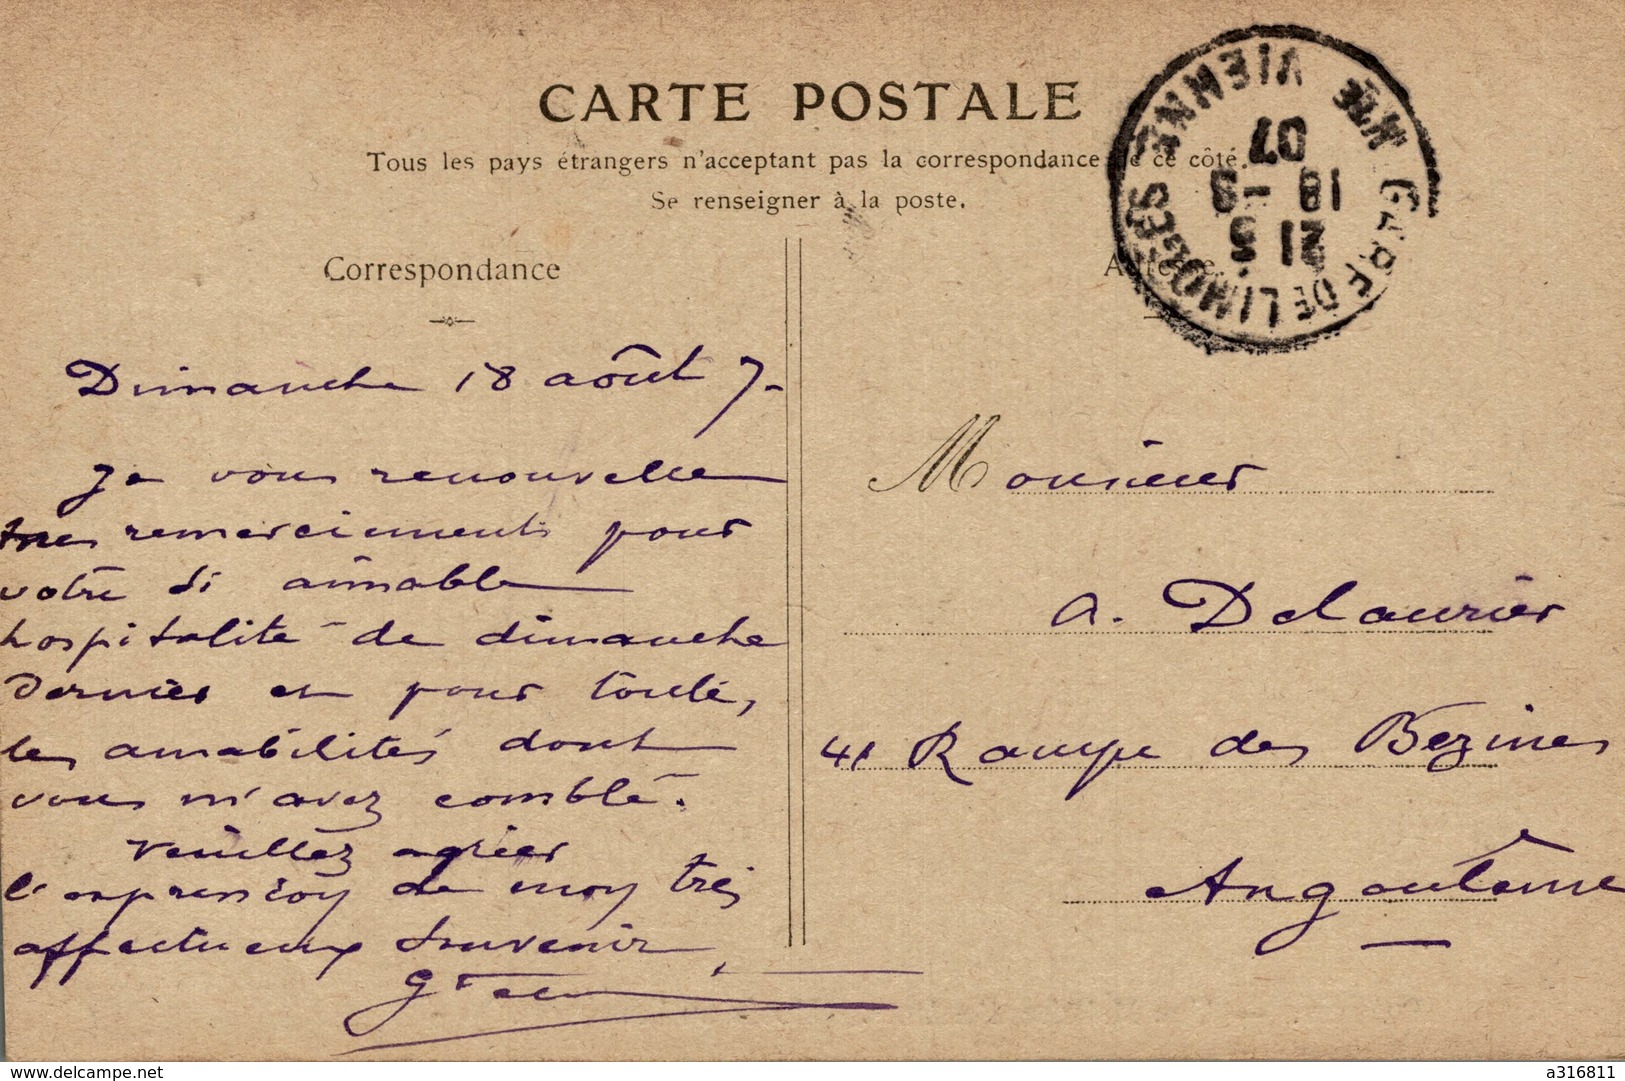 CARTE POSTALE
Tous les pays étrangers n'acceptant pas la correspondance de ce côté.
Se renseigner à la poste.
Correspondance
Adresse
GARE DE LIMOGES
HTE VIENNE
21 5
18 - 8
07
Dimanche 18 août 7.
Je vous renouvelle
mes remerciements pour
votre si aimable
hospitalité de dimanche
dernier et pour toutes
les amabilités dont
vous m'avez comblé.
Veuillez agréer
l'expression de mon très
affectueux souvenir,
Monsieur
A. Delaurier
41 Rampe des Bezines
Angoulême
delcampe.net
a316811